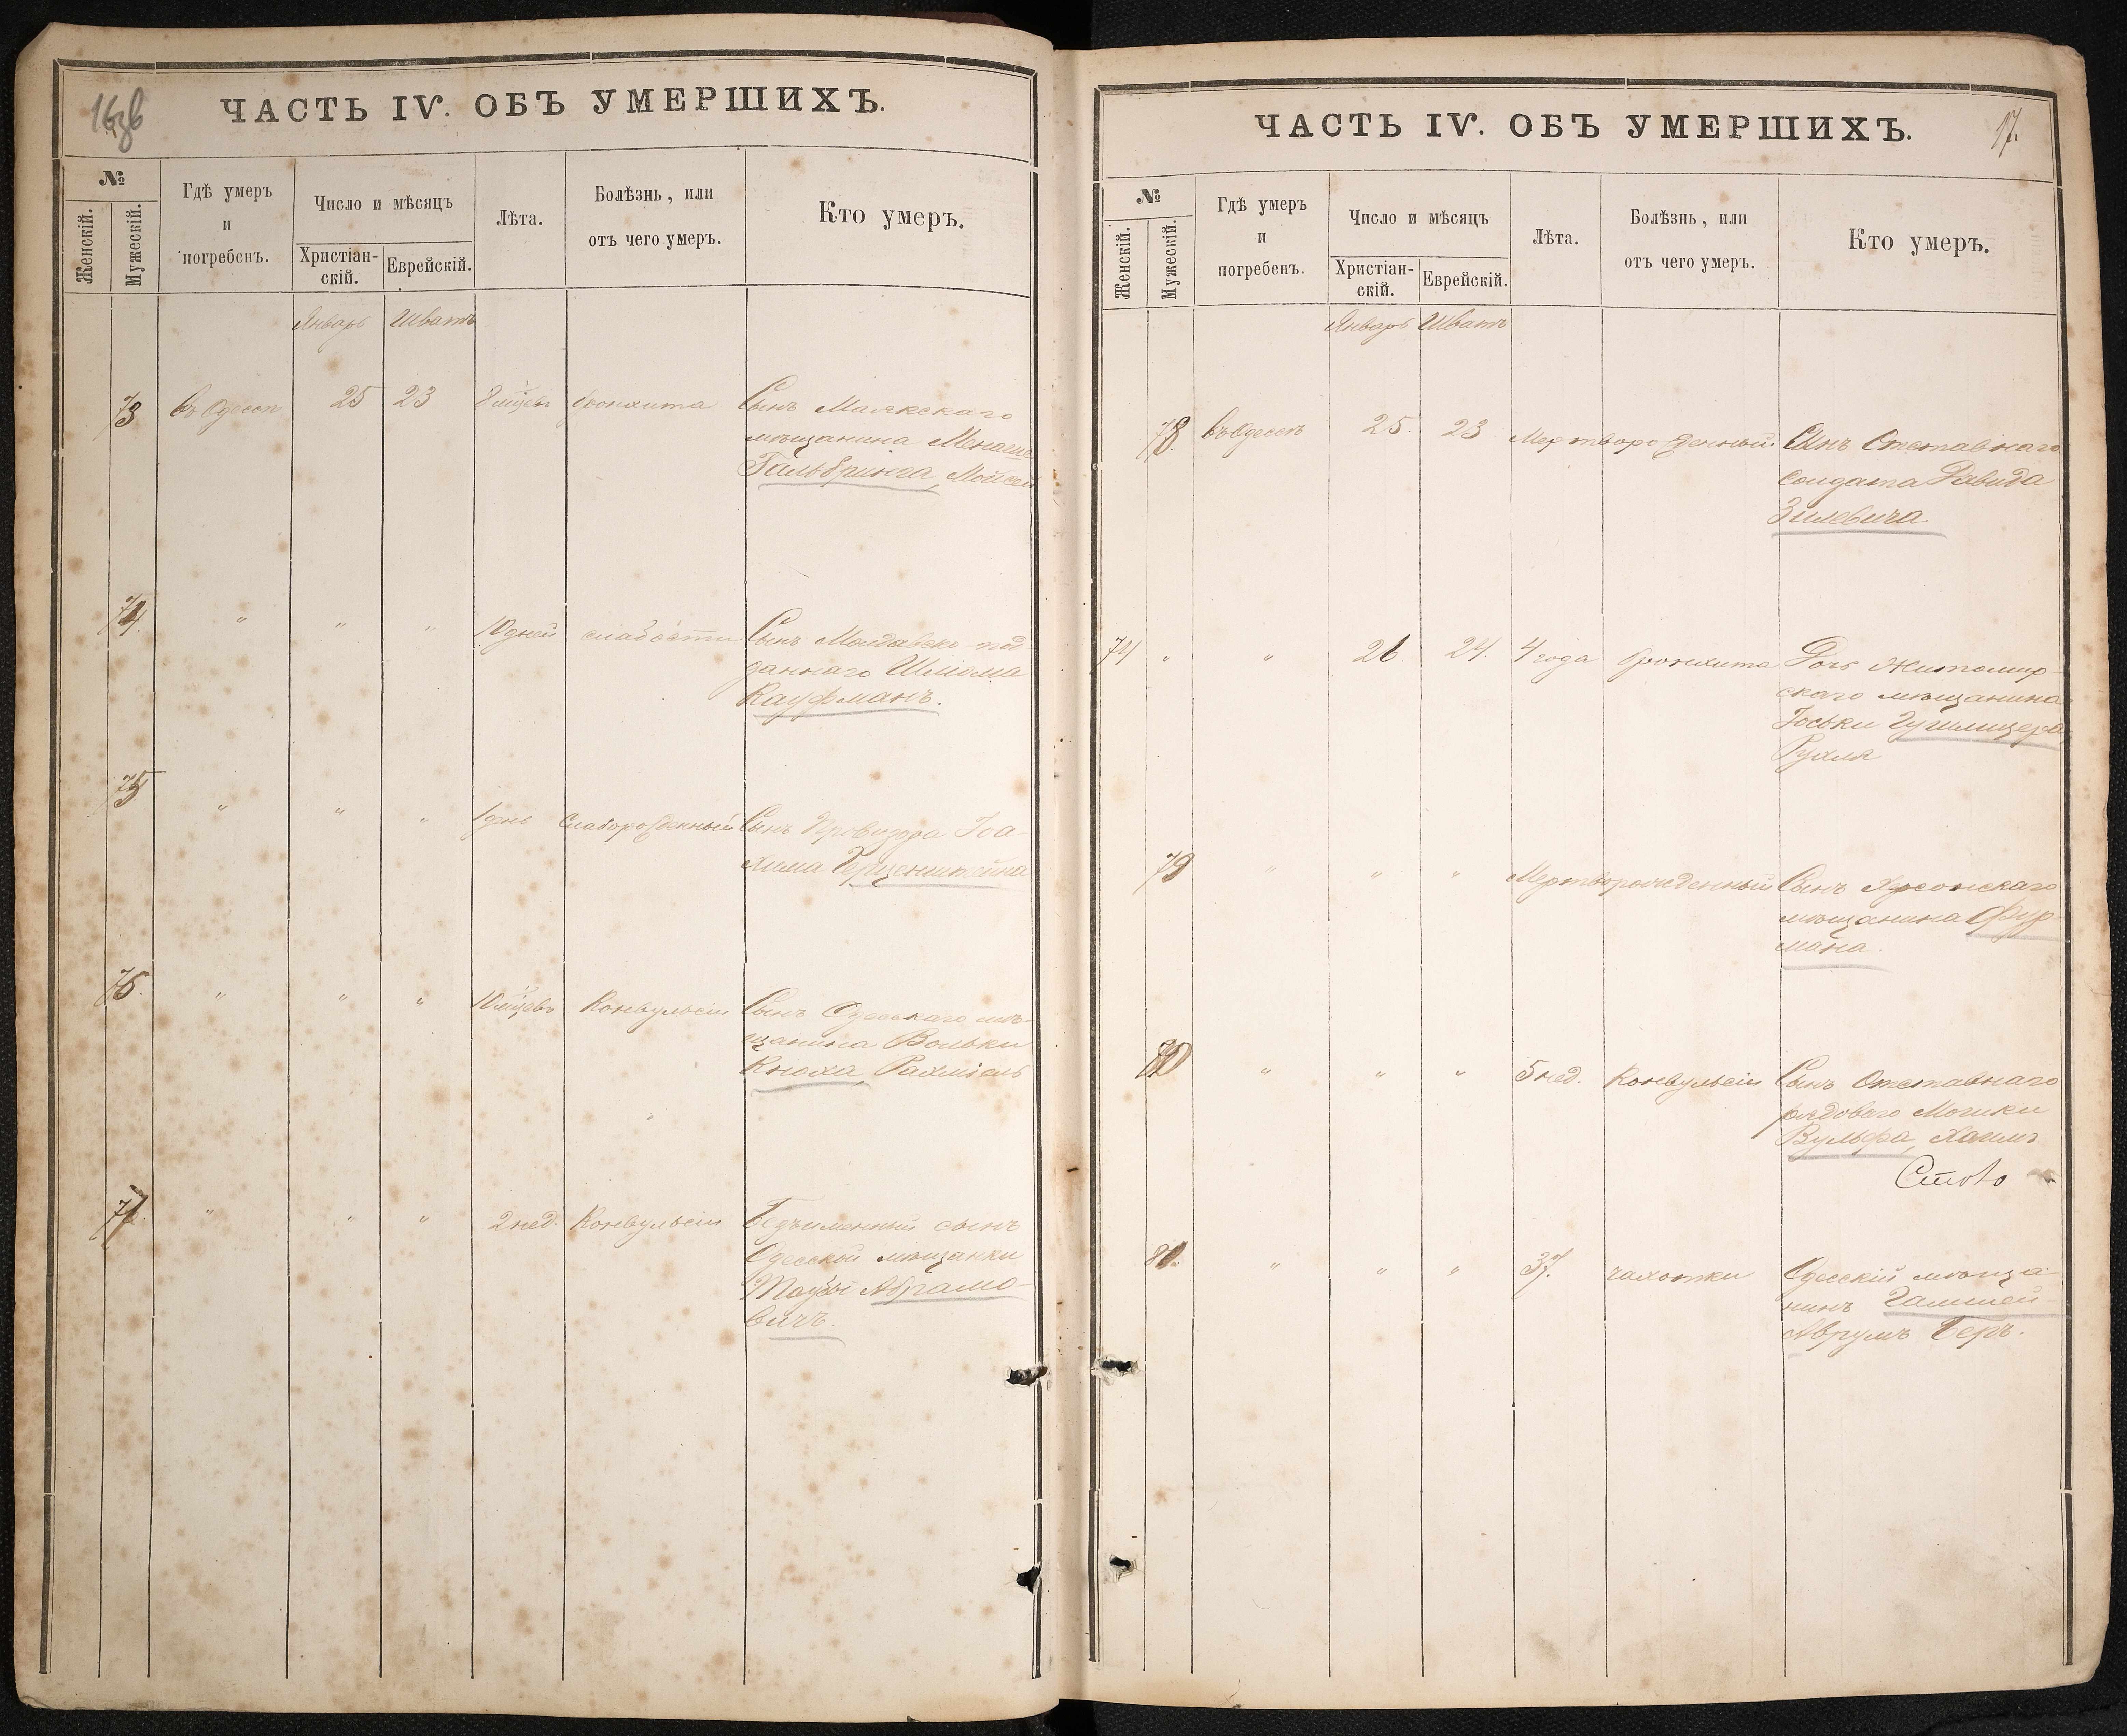 ЧАСТЬ IV. ОБЪ УМЕРШИХЪ.
№
Женскій.
Мужескій.
Гдѣ умеръ
и
погребенъ.
Число и мѣсяцъ
Христіан-
скій.
Еврейскій.
Лѣта.
Болѣзнь, или
отъ чего умеръ.
Кто умеръ.
Январь Шватъ
73 въ Одессѣ 25 23 мцевъ бронхита Сынъ Маякскаго
мѣщанина Менаше
Гальбринга, Мойсей
74. " " " 10 дней слабости Сынъ Молдавско-под
даннаго Шлiома
Кауфманъ.
75 " " " 1 день Слаборожденный Сынъ Провизора Іоа-
хима Герценштейна
76. " " " 10 мцевъ Конвульсіи Сынъ Одесскаго мѣ-
щанина Вольки
Кнюха, Рахміель
77. " " " 2 нед. Конвульсіи Безъименный сынъ
Одесской мѣщанки
Таубы Абрамо-
вичъ.
ЧАСТЬ IV. ОБЪ УМЕРШИХЪ.
17.
№
Женскій.
Мужескій.
Гдѣ умеръ
и
погребенъ.
Число и мѣсяцъ
Христіан-
скій.
Еврейскій.
Лѣта.
Болѣзнь, или
отъ чего умеръ.
Кто умеръ.
Январь Шватъ
78. въ Одессѣ 25. 23 Мертворожденный. Сынъ Отставнаго
Солдата Давида
Зилевича
74 " " 26. 24. 4 года бронхита Дочь Житомир-
скаго мѣщанина
Іоськи
Рухля
79 " " " Мертворожденный Сынъ Херсонскаго
мѣщанина Фур-
мана.
80 " " " 5 нед. Конвульсіи Сынъ Отставнаго
рядоваго Мошки
Вульфа, Хаимъ
81. " " " 37. чахотки Одесскій мѣща-
нинъ
Аврумъ Беръ.